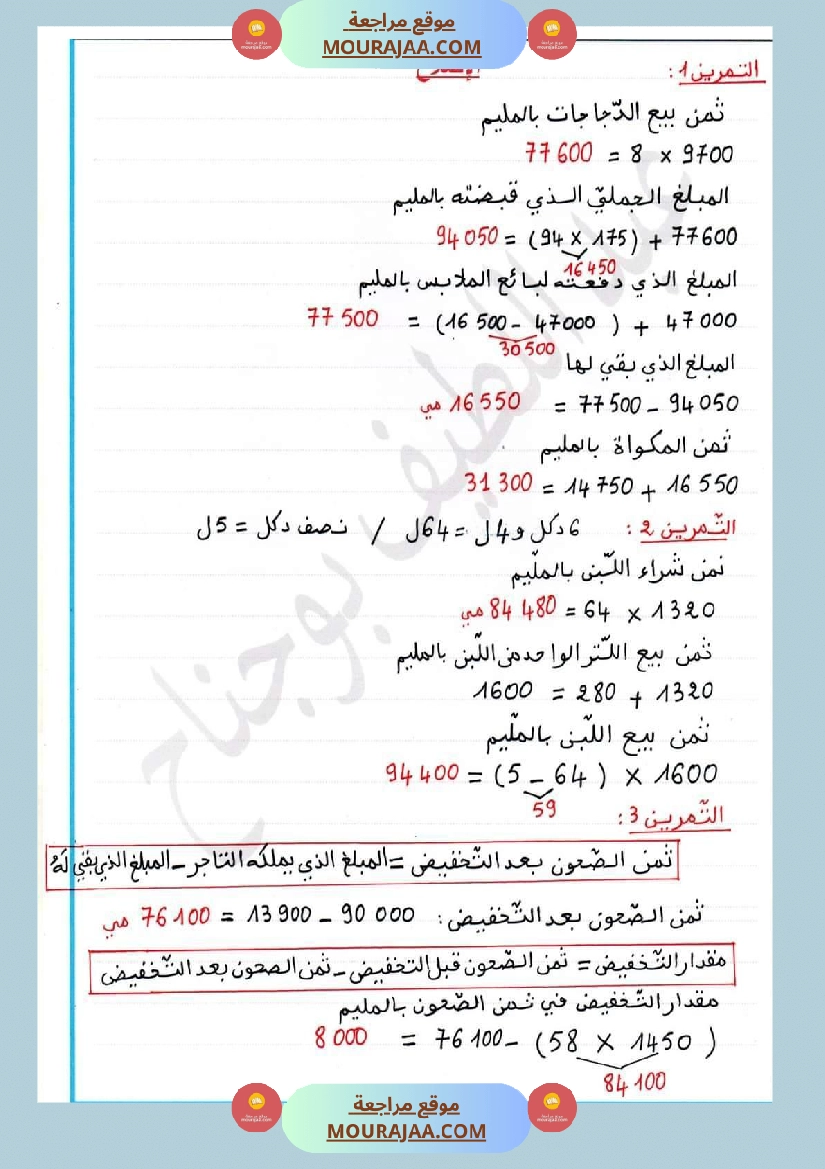 موقع مراجعة
MOURAJAA.COM
التمرين 1 :
ثمن بيع الدّجاجات بالمليم
9700 × 8 = 77 600
المبلغ الجمليّ الـذي قبضته بالمليم
77600 + (175 × 94) = 94 050
16 450
المبلغ الذي دفعته لبائع الملابس بالمليم
47 000 + ( 47000 – 16 500) = 77 500
30 500
المبلغ الذي بقي لها
94 050 – 77 500 = 16 550 مي
ثمن المكواة بالمليم
16 550 + 14 750 = 31 300
التّمرين 2 : 6 دكل و 4ل = 64ل / نصف دكل = 5ل
ثمن شراء اللّبن بالملّيم
1320 × 64 = 84 480 مي
ثمن بيع اللّتر الواحد من اللّبن بالمليم
1320 + 280 = 1600
ثمن بيع اللّبن بالملّيم
1600 × ( 64 – 5) = 94 400
59
التّمرين 3 :
ثمن الصّحون بعد التّخفيض = المبلغ الذي يملكه التاجر – المبلغ الذي بقي لهُ
ثمن الصّحون بعد التّخفيض : 90 000 – 13 900 = 76 100 مي
مقدار التّخفيض = ثمن الصّحون قبل التخفيض – ثمن الصحون بعد التّخفيض
مقدار التّخفيض في ثمن الصّحون بالمليم
( 1450 × 58) – 76 100 = 8 000
84 100
موقع مراجعة
MOURAJAA.COM